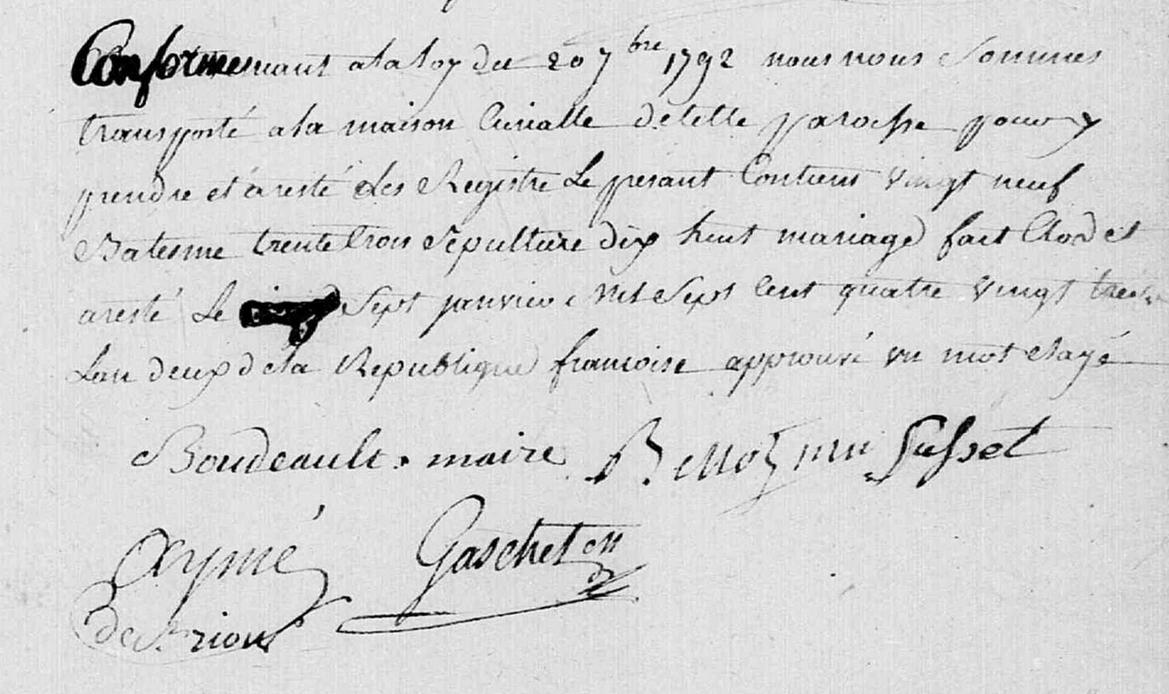 Conformemant a la loy du 20 7bre 1792 nous nous sommes
transporté a la maison Curialle de cette paroisse pour y
prendre et aresté Les Registre Le presant Contient vingt neuf
Batesme trente trois Sepulture dix huit mariage fait Clos et
aresté Le Sept janvier mil Sept Cent quatre vingt
Lan deux de la Republique francoise approuvé un mot
Boudeault maire
Aymé Gaschet